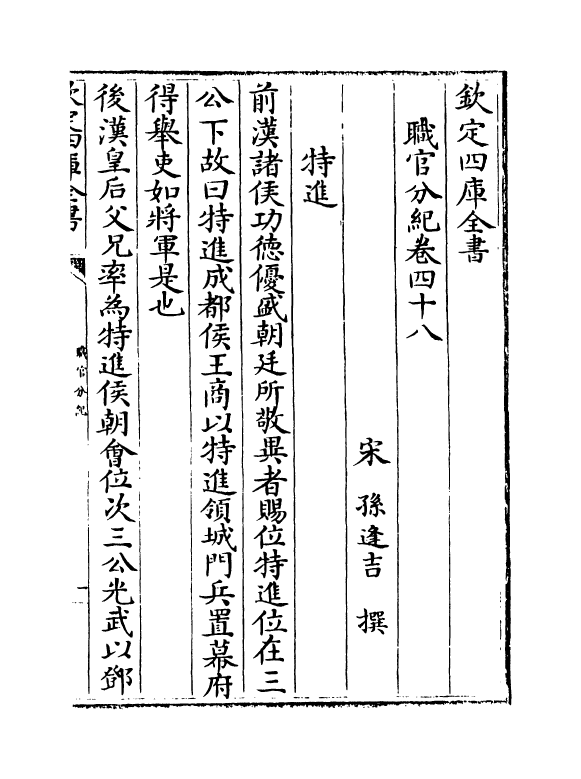 欽定四庫全書
職官分紀卷四十八
宋 孫逢吉 撰
特進
前漢諸侯功徳優盛朝廷所敬異者賜位特進位在三
公下故曰特進成都侯王商以特進領城門兵置幕府
得舉吏如將軍是也
後漢皇后父兄率為特進侯朝會位次三公光武以鄧
欽定四庫全書
職官分紀
一